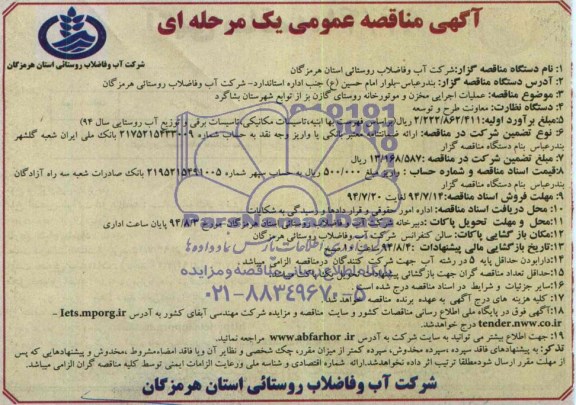 آگهی مناقصه عمومی یک مرحله ای
شرکت آب وفاضلاب روستائی استان هرمزگان
۱: نام دستگاه مناقصه گزار:شرکت آب وفاضلاب روستائی استان هرمزگان
۲: آدرس دستگاه مناقصه گزار: بندرعباس-بلوار امام حسین (ع) جنب اداره استاندارد- شرکت آب وفاضلاب روستائی هرمزگان
۳: موضوع مناقصه: عملیات اجرایی مخزن و موتورخانه روستای گازن بز از توابع شهرستان بشاگرد
۴: دستگاه نظارت: معاونت طرح و توسعه
۵:مبلغ برآورد اولیه: ۲/۲۲۲/۸۶۲/۳۱۱ ریال(براساس فهرست بها ابنیه،تاسیسات مکانیکی،تاسیسات برقی و توزیع آب روستایی سال ۹۴)
۶: نوع تضمین شرکت در مناقصه: ارائه ضمانتنامه معتبر بانکی یا واریز وجه نقد به حساب شماره ۲۱۷۵۲۱۵۴۲۳۰۰۹ بانک ملی ایران شعبه گلشهر
بندرعباس بنام دستگاه مناقصه گزار
۷: مبلغ تضمین شرکت در مناقصه: ۱۳/۱۶۸/۵۸۷ ریال
۸:قیمت اسناد مناقصه و شماره حساب : واریز مبلغ ۵۰۰/۰۰۰ ریال به حساب سپهر شماره ۲۱۹۵۲۱۵۲۹۱۰۰۵ بانک صادرات شعبه سه راه آزادگان
بندرعباس بنام دستگاه مناقصه گزار
۹: مهلت فروش اسناد مناقصه:۹۴/۷/۱۴ لغایت ۹۴/۷/۲۰
۱۰: محل دریافت اسناد مناقصه: اداره امور حقوقی و قراردادها و رسیدگی به شکایات
۱۱:محل و مهلت تحویل پاکات :دبیرخانه شرکت آب و فاضلاب روستائی استان هرمزگان مورخ ۹۴/۸/۳ پایان ساعت اداری
۱۲:مکان بازگشایی پاکات: سالن کنفرانس شرکت آب وفاضلاب روستائی هرمزگان
۱۳:تاریخ بازگشایی مالی پیشنهادات :۹۴/۸/۴ ساعت ۱۰ صبح
۱۴:دارابودن حداقل پایه ۵ در رشته آب جهت شرکت کنندگان درمناقصه الزامی میباشد.
۱۵:حداقل تعداد مناقصه گران جهت بازگشائی پیشنهادات تحویل یک پاکت میباشد
۱۶:سایر جزئیات و شرایط در اسناد مناقصه درج شده است
۱۷: کلیه هزینه های درج آگهی به عهده برنده مناقصه خواهدشد.
۱۸:آگهی فوق در پایگاه ملی اطلاع رسانی مناقصات کشور و سایت مناقصه و مزایده شرکت مهندسی آبفای کشور به آدرس Iets.mporg.ir -
tender.nww.co.ir درج خواهدشد.
۱۹: جهت اطلاع بیشتر می توانید به سایت شرکت به آدرس www.abfarhor.ir مراجعه نمائید.
تذکر: به پیشنهادهای فاقد سپرده ،سپرده مخدوش، سپرده کمتر از میزان مقرر، چک شخصی و نظایر آن ویا فاقد امضاء،مشروط ،مخدوش و پیشنهادهایی که پس
از مهلت مقرر ارسال شودمطلقا ترتیب اثر داده نخواهدشد.ارائه شماره اقتصادی و شناسه ملی ورعایت الزامات ایمنی توسط کلیه مناقصه گران الزامی میباشد.
شرکت آب وفاضلاب روستائی استان هرمزگان
ParsNamadData
پایگاه اطلاع رسانی مناقصه و مزایده
۰۲۱-۸۸۳۴۹۶۷۰-۵